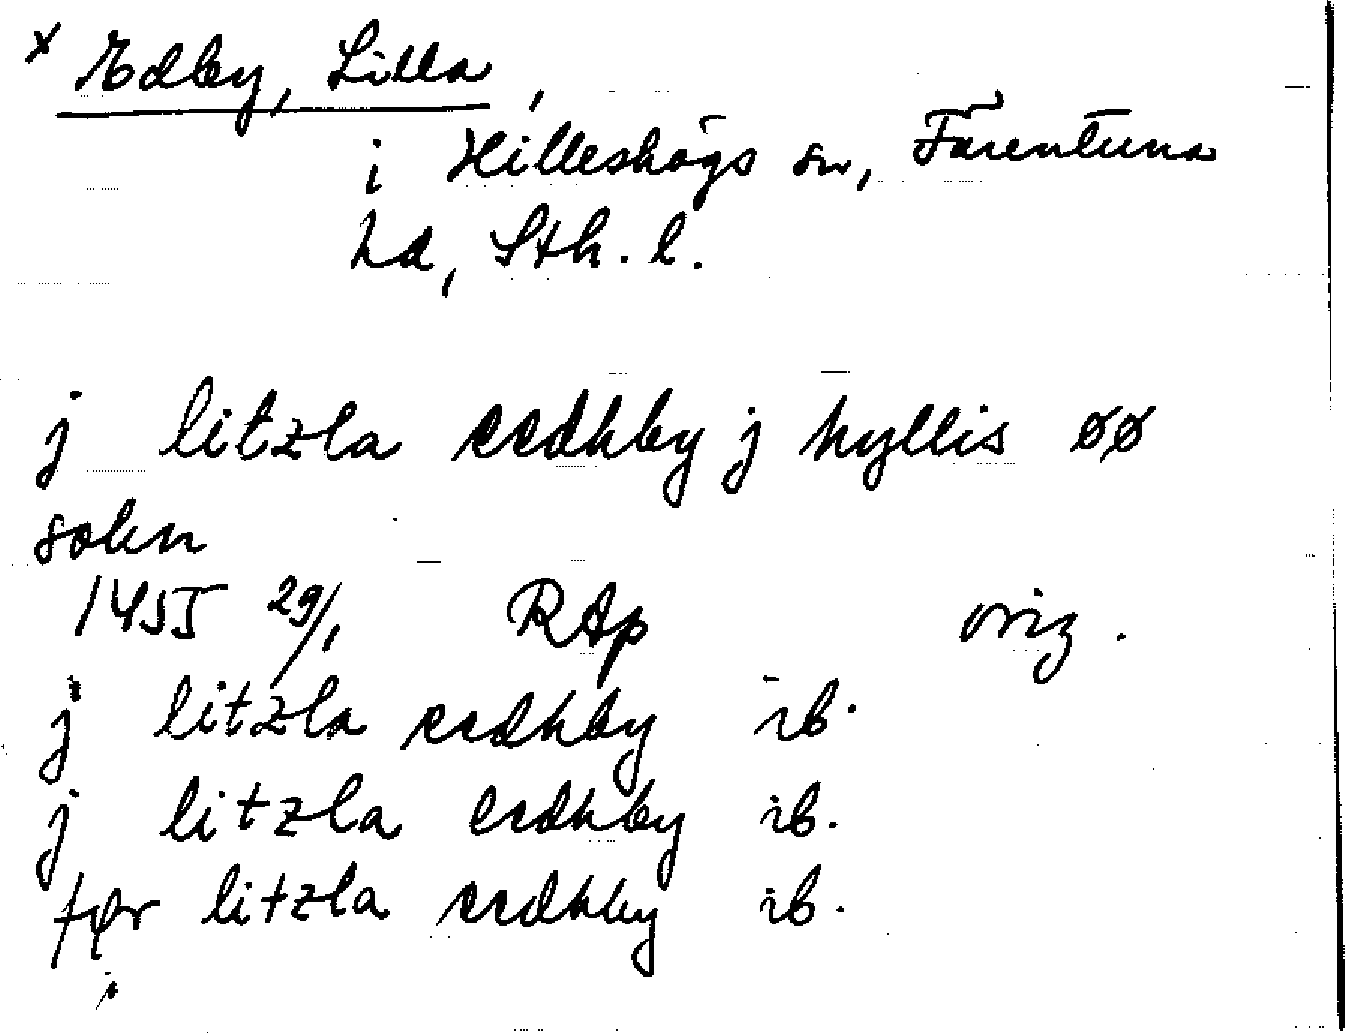 x Edby, Lilla,
i Hilleshögs sn, Färentuna
hd, Sth. l.
j litzla eedhby j hyllis øø
sokn
1455 29/1 RAp orig.
j litzla eedhby ib.
j litzla eedhby ib.
før litzla eedhby ib.